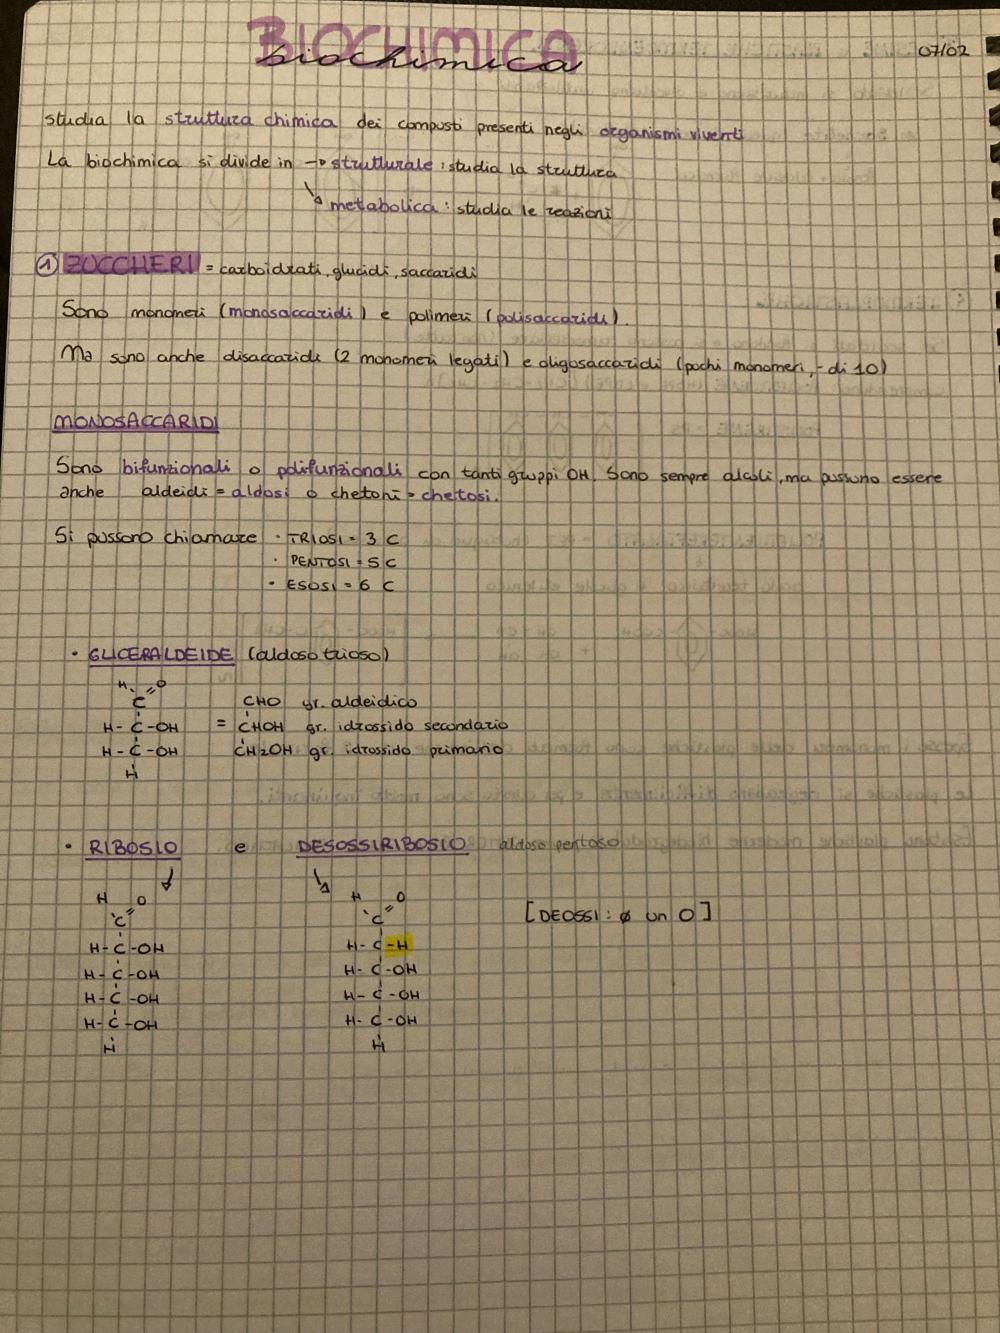 BIOCHIMICA
biochimica
07/02
studia la struttura chimica dei composti presenti negli organismi viventi
La biochimica si divide in → strutturale: studia la struttura
↘ metabolica: studia le reazioni
① ZUCCHERI = carboidrati, glucidi, saccaridi
Sono monomeri (monosaccaridi) e polimeri (polisaccaridi).
Ma sono anche disaccaridi (2 monomeri legati) e oligosaccaridi (pochi monomeri, - di 10)
MONOSACCARIDI
Sono bifunzionali o polifunzionali con tanti gruppi OH. Sono sempre alcoli, ma possono essere
anche aldeidi = aldosi o chetoni = chetosi.
Si possono chiamare · TRIOSI = 3 C
· PENTOSI = 5 C
· ESOSI = 6 C
· GLICERALDEIDE (aldoso trioso)
H O
C CHO gr. aldeidico
H - C - OH = CHOH gr. idrossido secondario
H - C - OH CH2OH gr. idrossido primario
H
· RIBOSIO e DESOSSIRIBOSIO aldoso pentoso
H O H O [DEOSSI: ø un O]
C C
H - C - OH H - C - H
H - C - OH H - C - OH
H - C - OH H - C - OH
H - C - OH H - C - OH
H H